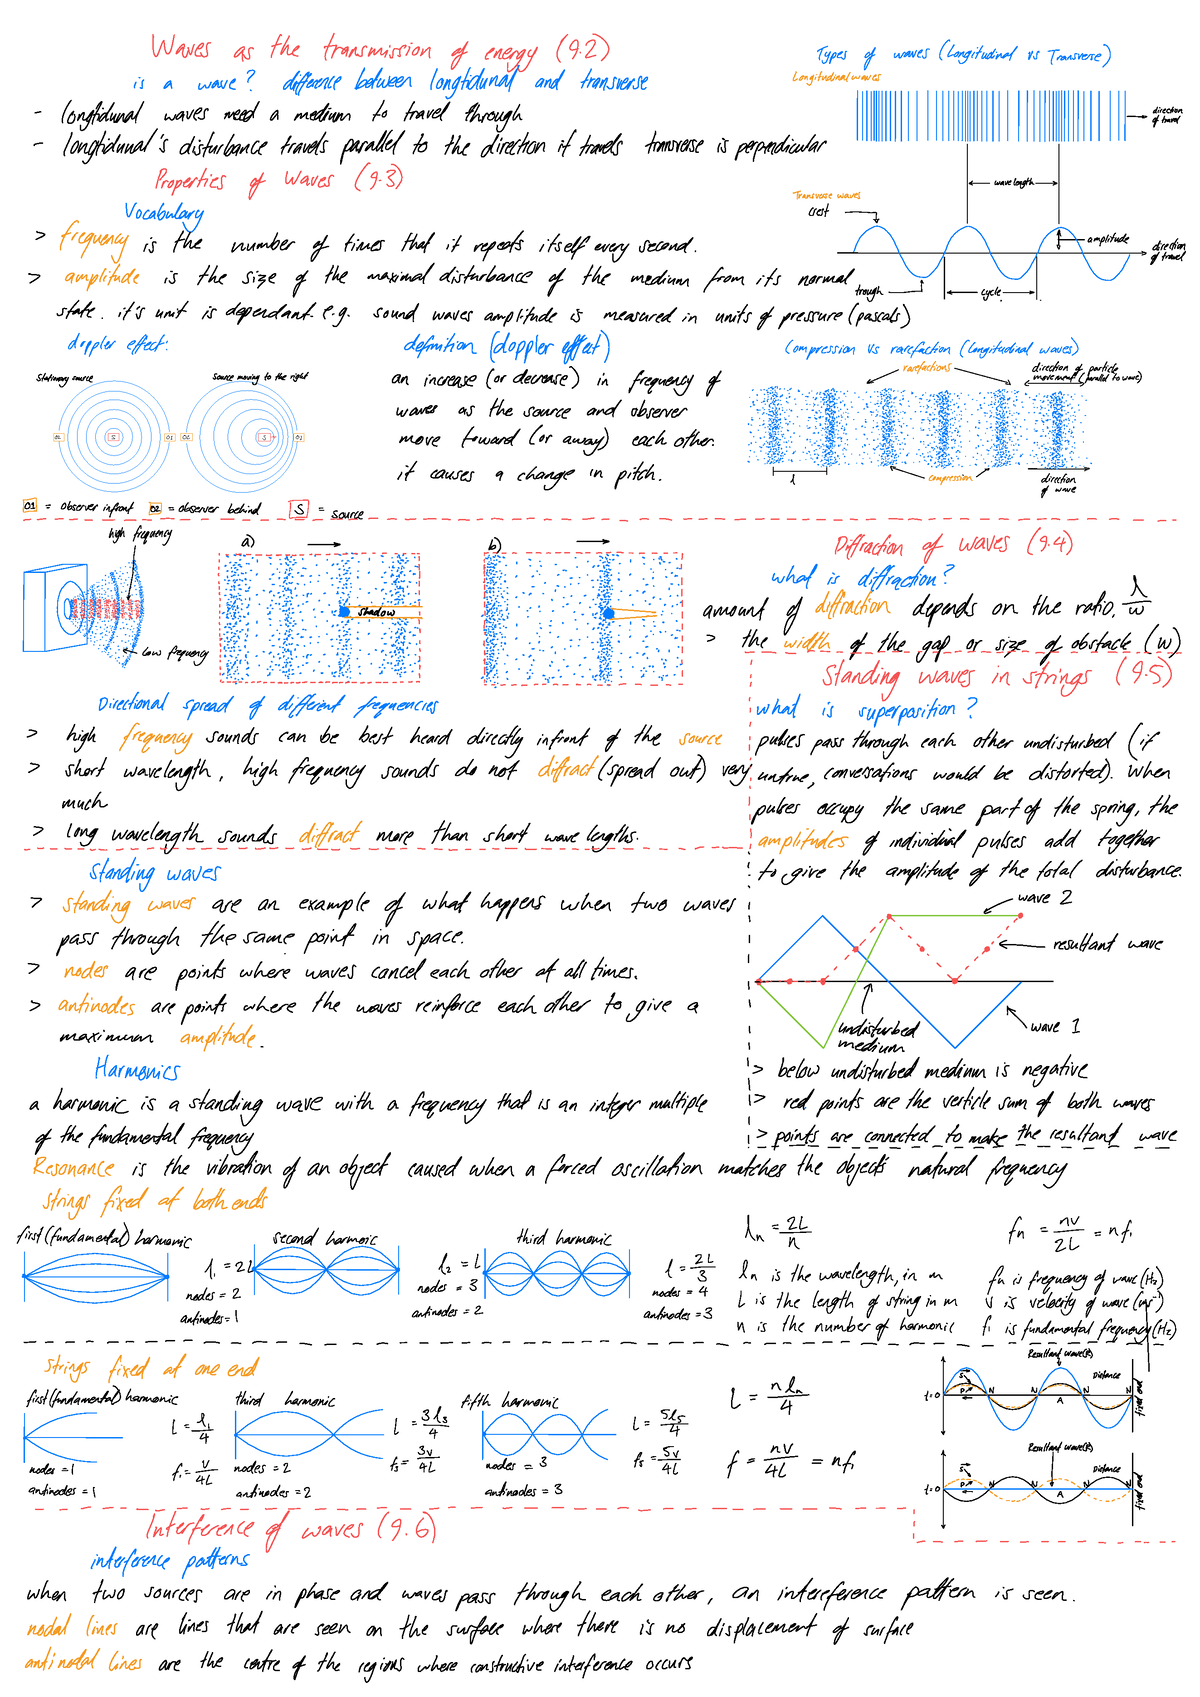 Waves as the transmission of energy (9.2)
is a wave? difference between longtidunal and transverse
- longtidunal waves need a medium to travel through
- longtidunal's disturbance travels parallel to the direction it travels transverse is perpendicular
Types of waves (Longitudinal vs Transverse)
Longitudinal waves
direction of travel
wavelength
Transverse waves
crest
amplitude
direction of travel
trough
cycle
Properties of Waves (9.3)
Vocabulary
> frequency is the number of times that it repeats itself every second.
> amplitude is the size of the maximal disturbance of the medium from its normal
state. it's unit is dependant. e.g. sound waves amplitude is measured in units of pressure (pascals)
doppler effect:
Stationary source
Source moving to the right
O2 S O1 O2 S O1
O1 = observer infront O2 = observer behind S = source
definition (doppler effect)
an increase (or decrease) in frequency of
waves as the source and observer
move toward (or away) each other.
it causes a change in pitch.
Compression vs rarefaction (Longitudinal waves)
rarefactions
direction of particle
movement (parallel to wave)
λ
compression
direction of wave
high frequency
low frequency
a)
shadow
b)
Diffraction of waves (9.4)
what is diffraction?
amount of diffraction depends on the ratio. λ/w
> the width of the gap or size of obstacle (w)
Directional spread of different frequencies
> high frequency sounds can be best heard directly infront of the source
> short wavelength, high frequency sounds do not diffract (spread out) very
much
> long wavelength sounds diffract more than short wavelengths.
Standing waves in strings (9.5)
what is superposition?
pulses pass through each other undisturbed (if
untrue, conversations would be distorted). When
pulses occupy the same part of the spring, the
amplitudes of individial pulses add together
to give the amplitude of the total disturbance.
wave 2
resultant wave
undisturbed
medium
wave 1
> below undisturbed medium is negative
> red points are the verticle sum of both waves
> points are connected to make the resultant wave
Standing waves
> standing waves are an example of what happens when two waves
pass through the same point in space.
> nodes are points where waves cancel each other at all times.
> antinodes are points where the waves reinforce each other to give a
maximum amplitude.
Harmonics
a harmonic is a standing wave with a frequency that is an integer multiple
of the fundamental frequency
Resonance is the vibration of an object caused when a forced oscillation matches the objects natural frequency
strings fixed at both ends
first (fundamental) harmonic
λ₁ = 2L
nodes = 2
antinodes = 1
second harmoic
λ₂ = L
nodes = 3
antinodes = 2
third harmonic
λ = 2L/3
nodes = 4
antinodes = 3
λn = 2L/n
λn is the wavelength, in m
L is the length of string in m
n is the number of harmonic
fn = nv/2L = nf₁
fn is frequency of wave (Hz)
v is velocity of wave (ms⁻¹)
f₁ is fundamental frequency (Hz)
strings fixed at one end
first (fundamental) harmonic
L = λ₁/4
f₁ = v/4L
nodes = 1
antinodes = 1
third harmonic
L = 3λ₃/4
f₃ = 3v/4L
nodes = 2
antinodes = 2
fifth harmonic
L = 5λ₅/4
f₅ = 5v/4L
nodes = 3
antinodes = 3
L = nλn/4
f = nv/4L = nf₁
Resultant wave (R)
Distance
t=0
S
P
N N N N
A
fixed end
Resultant wave (R)
Distance
t=0
S
P
N N N N
A
fixed end
Interference of waves (9.6)
interference patterns
when two sources are in phase and waves pass through each other, an intereference pattern is seen.
nodal lines are lines that are seen on the surface where there is no displacement of surface
antinodal lines are the centre of the regions where constructive interference occurs